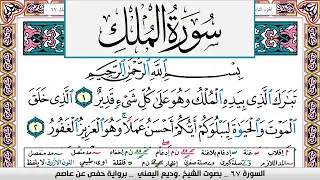 سُورَةُ الْمُلْكِ
بِسْمِ اللَّهِ الرَّحْمَٰنِ الرَّحِيمِ
تَبَٰرَكَ الَّذِي بِيَدِهِ الْمُلْكُ وَهُوَ عَلَىٰ كُلِّ شَيْءٍ قَدِيرٌ ١ الَّذِي خَلَقَ
الْمَوْتَ وَالْحَيَوٰةَ لِيَبْلُوَكُمْ أَيُّكُمْ أَحْسَنُ عَمَلًا وَهُوَ الْعَزِيزُ الْغَفُورُ ٢
السورة ٦٧ .. بصوت الشيخ .وديع اليمني .. برواية حفص عن عاصم